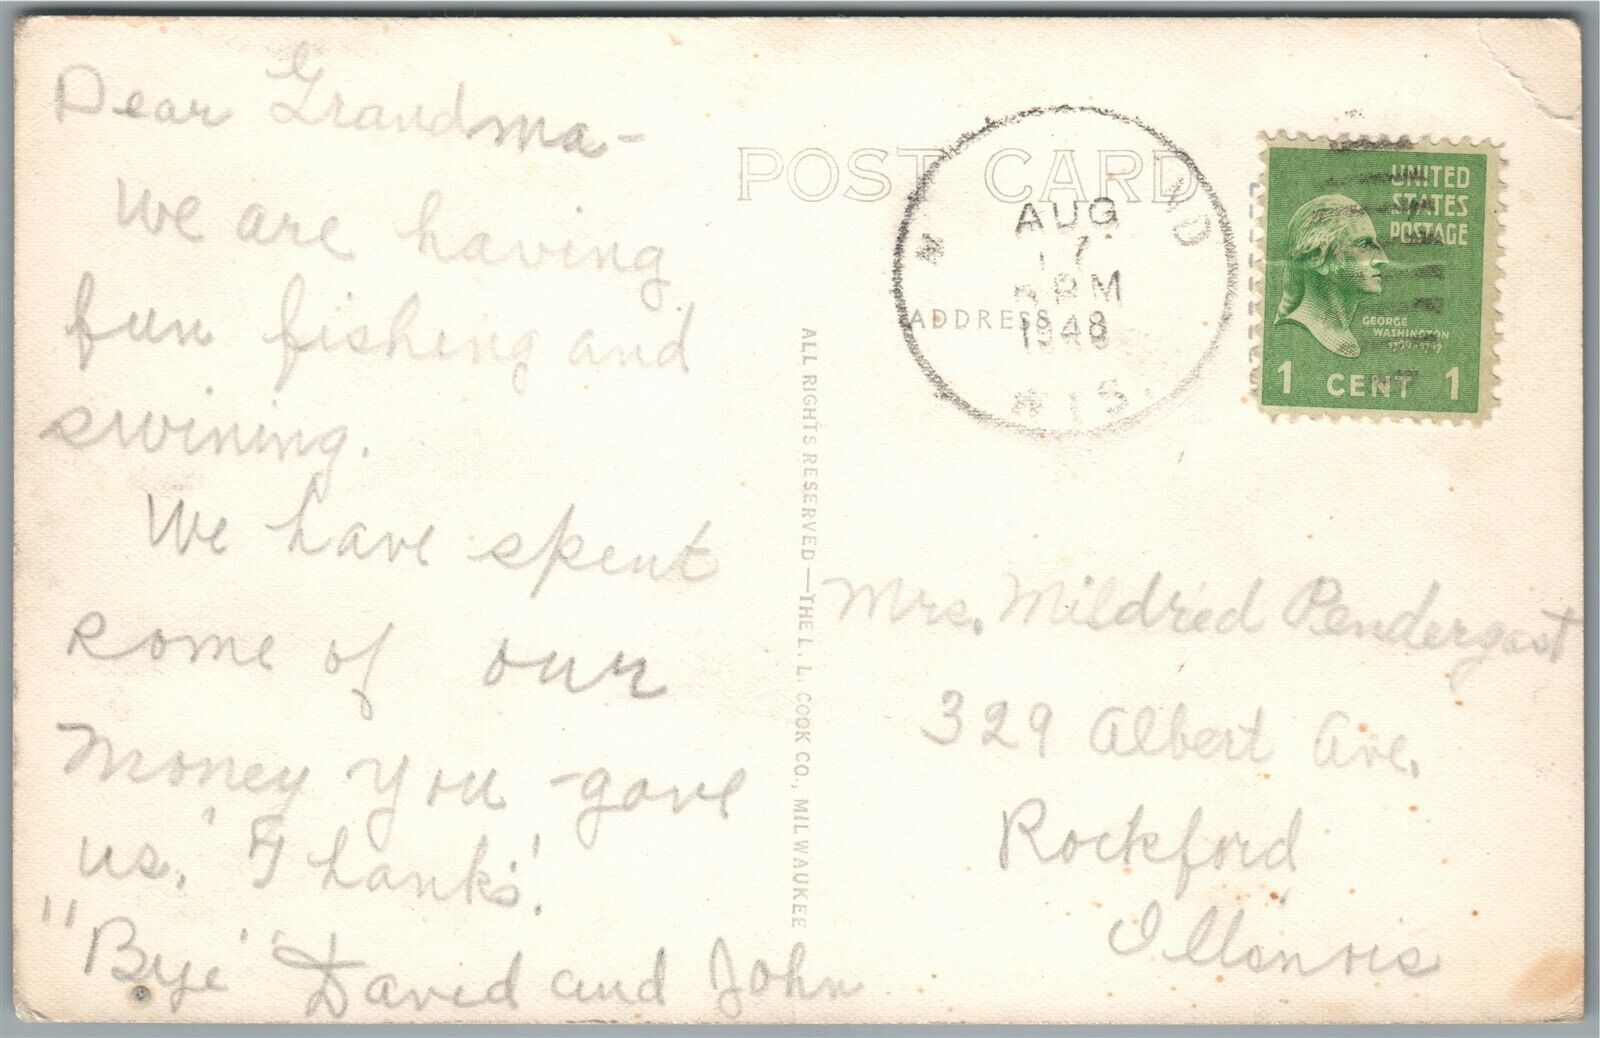 Dear Grandma-
We are having
fun fishing and
swining.
We have spent
some of our
money you gave
us. 'Thanks'.
"Bye" David and John
POST CARD
ADDRESS
AUG
17
PM
1948
WIS.
UNITED
STATES
POSTAGE
GEORGE
WASHINGTON
1 CENT 1
ALL RIGHTS RESERVED—THE L. L. COOK CO., MILWAUKEE
Mrs. Mildred Pendergast
329 Albert Ave.
Rockford
Illonois